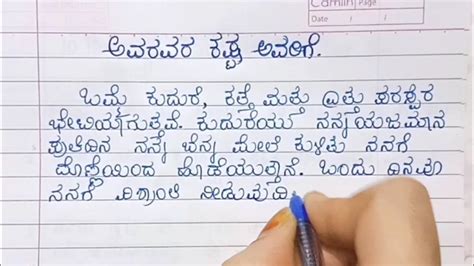 Camlin
Page
Date
ಅವರವರ ಕಷ್ಟ ಅವರಿಗೆ.
ಒಮ್ಮೆ ಕುದುರೆ, ಕತ್ತೆ ಮತ್ತು ಎತ್ತು ಪರಸ್ಪರ
ಭೇಟಿಯಾಗುತ್ತವೆ. ಕುದುರೆಯು ನನ್ನ ಯಜಮಾನ
ಪ್ರತಿದಿನ ನನ್ನ ಬೆನ್ನ ಮೇಲೆ ಕುಳಿತು ನನಗೆ
ದೊಣ್ಣೆಯಿಂದ ಹೊಡೆಯುತ್ತಾನೆ. ಒಂದು ದಿನವೂ
ನನಗೆ ವಿಶ್ರಾಂತಿ ನೀಡುವುದಿ